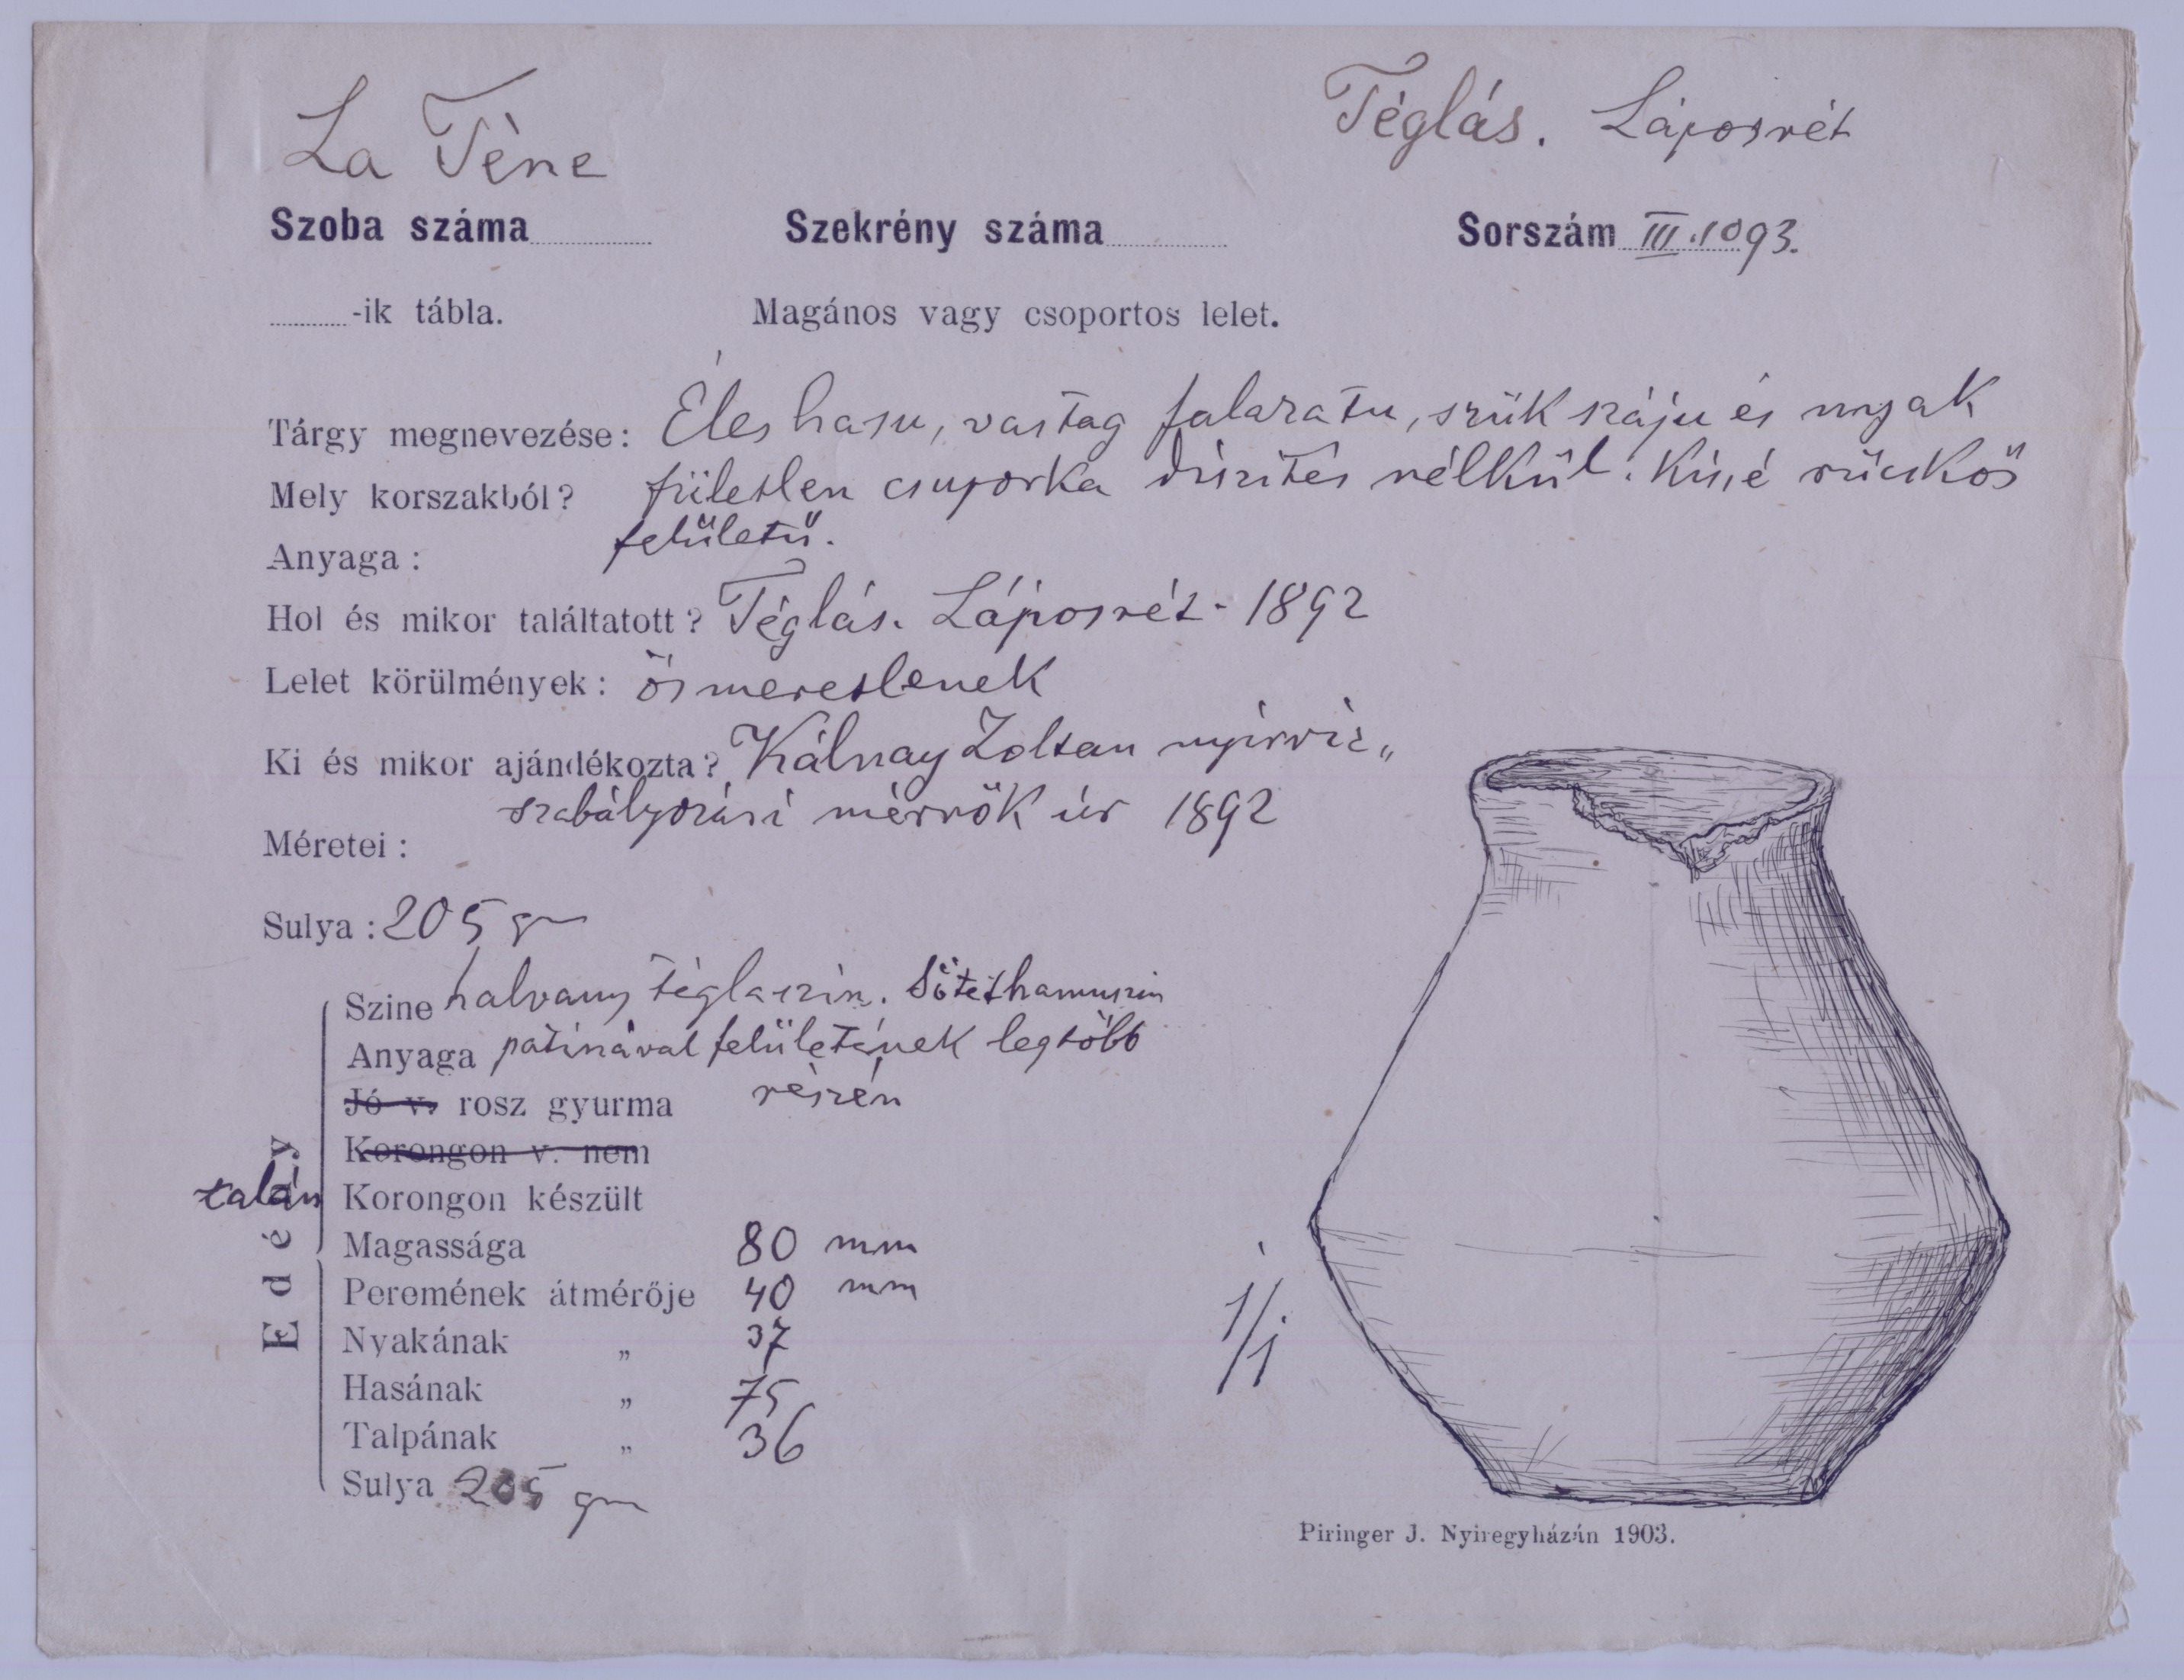 La Tène
Téglás. Láposrét
Szoba száma
Szekrény száma
Sorszám III.1093.
-ik tábla.
Magános vagy csoportos lelet.
Tárgy megnevezése: Éles hasu, vastag falazatu, szük száju és nyak
Mely korszakból? fületlen csuporka diszités nélkül. Kissé rücskös
felületű.
Anyaga:
Hol és mikor találtatott? Téglás. Láposrét - 1892
Lelet körülmények: ösmeretlenek
Ki és mikor ajándékozta? Kálnay Zoltan nyirviz„
szabályozási mérnök úr 1892
Méretei:
Sulya: 205 gm
Szine halvany téglaszin. Sötét hamuszin
Anyaga patinával felületének legtöbb
Jó v. rosz gyurma részén
Korongon v. nem
talán Korongon készült
Edény
Magassága 80 mm
Peremének átmérője 40 mm
Nyakának „ 37
Hasának „ 75
Talpának „ 36
Sulya 205 gm
1/1
Piringer J. Nyiregyházán 1903.